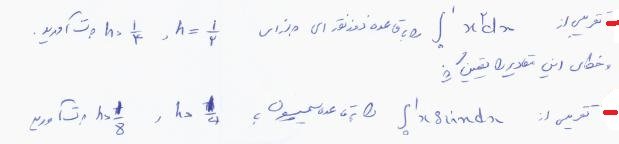 تقریبی از ∫₀¹ x²dx را با قاعده ذوزنقه ای به ازای h = 1/2 , h = 1/4 بدست آورید.
و خطای این مقادیر را تعیین کنید
تقریبی از ∫₀¹ x sinx dx را با قاعده سیمپسون با h = 1/4 , h = 1/8 بدست آورید